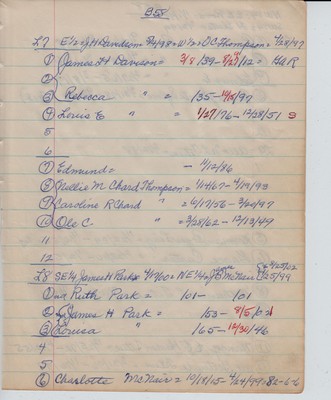 B58
L7 E½ = J H Davidson = W½ = O C Thompson = 4/28/97
① James H Davison = 3/8/39 - 8/27/12 = GAR
②
③ Rebecca " = /35 - /97
④ Lovis E " = 1/27/76 - 12/28/51 S
5
6
⑦ Edmund = - 4/12/86
⑧ Nellie M Chard Thompson = 1/14/67 - 4/19/93
⑨ Caroline R Chard " = 6/17/56 - 3/20/97
⑩ Ole C " = 3/28/62 - 12/13/49
11
12
L8 SE¼ James H Park = 4/17/00 = NE¼ = McNair
① Ruth Park = /01 - /01
② James H Park = /53 - 8/5/02
③ Louisa " /65 - 12/30/46
4
5
⑥ Charlotte McNair = 10/18/15 - 4/24/99 = 82-6-6